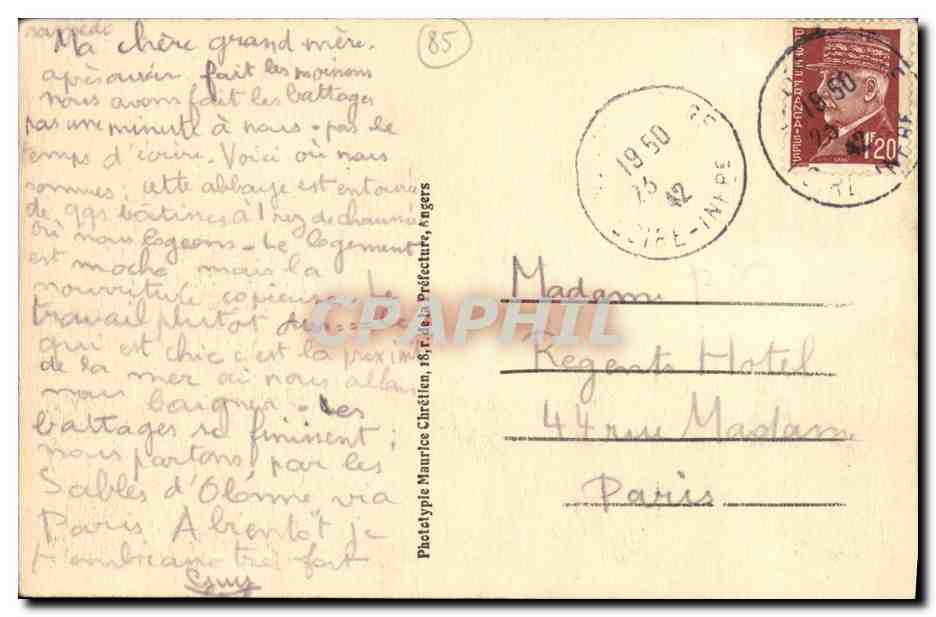 samedi
Ma chère grand mère.
après avoir fait les moissons
nous avons fait les battages
pas une minute à nous - pas le
temps d'écrire. Voici où nous
sommes; cette abbaye est entourée
de qqs bâtines à 1 rez de chaussée
où nous logeons - Le logement
est moche mais la
nourriture copieuse. Le
travail plutôt
qui est chic c'est la proxim
de la mer où nous allons
nous baigner - Les
battages se finissent;
nous partons par les
Sables d'Olonne via
Paris A bientôt je
t'embrasse très fort
85
Phototypie Maurice Chrétien, 18, r. de la Préfecture, Angers
CPAPHIL
19 50
23
42
LOIRE-INFRE
POSTES FRANÇAISES
1F20
19 50
23
42
RE INFRE
Madame
Regents Hotel
44 rue Madame
Paris